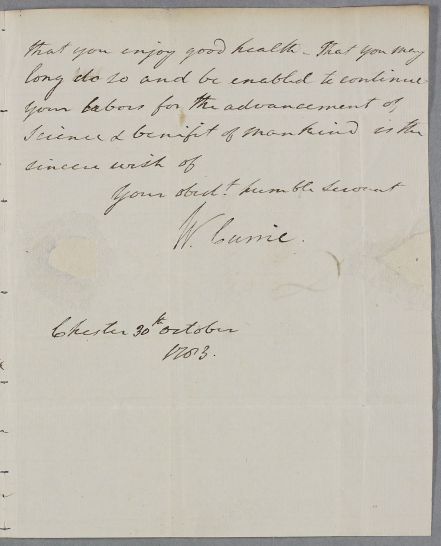 that you enjoy good health - That you may
long do so and be enabled to continue
your labors for the advancement of
Science & benifit of mankind is the
sincere wish of
Your obedt. humble servant
W. Currie.
Chester 30th October
1703.